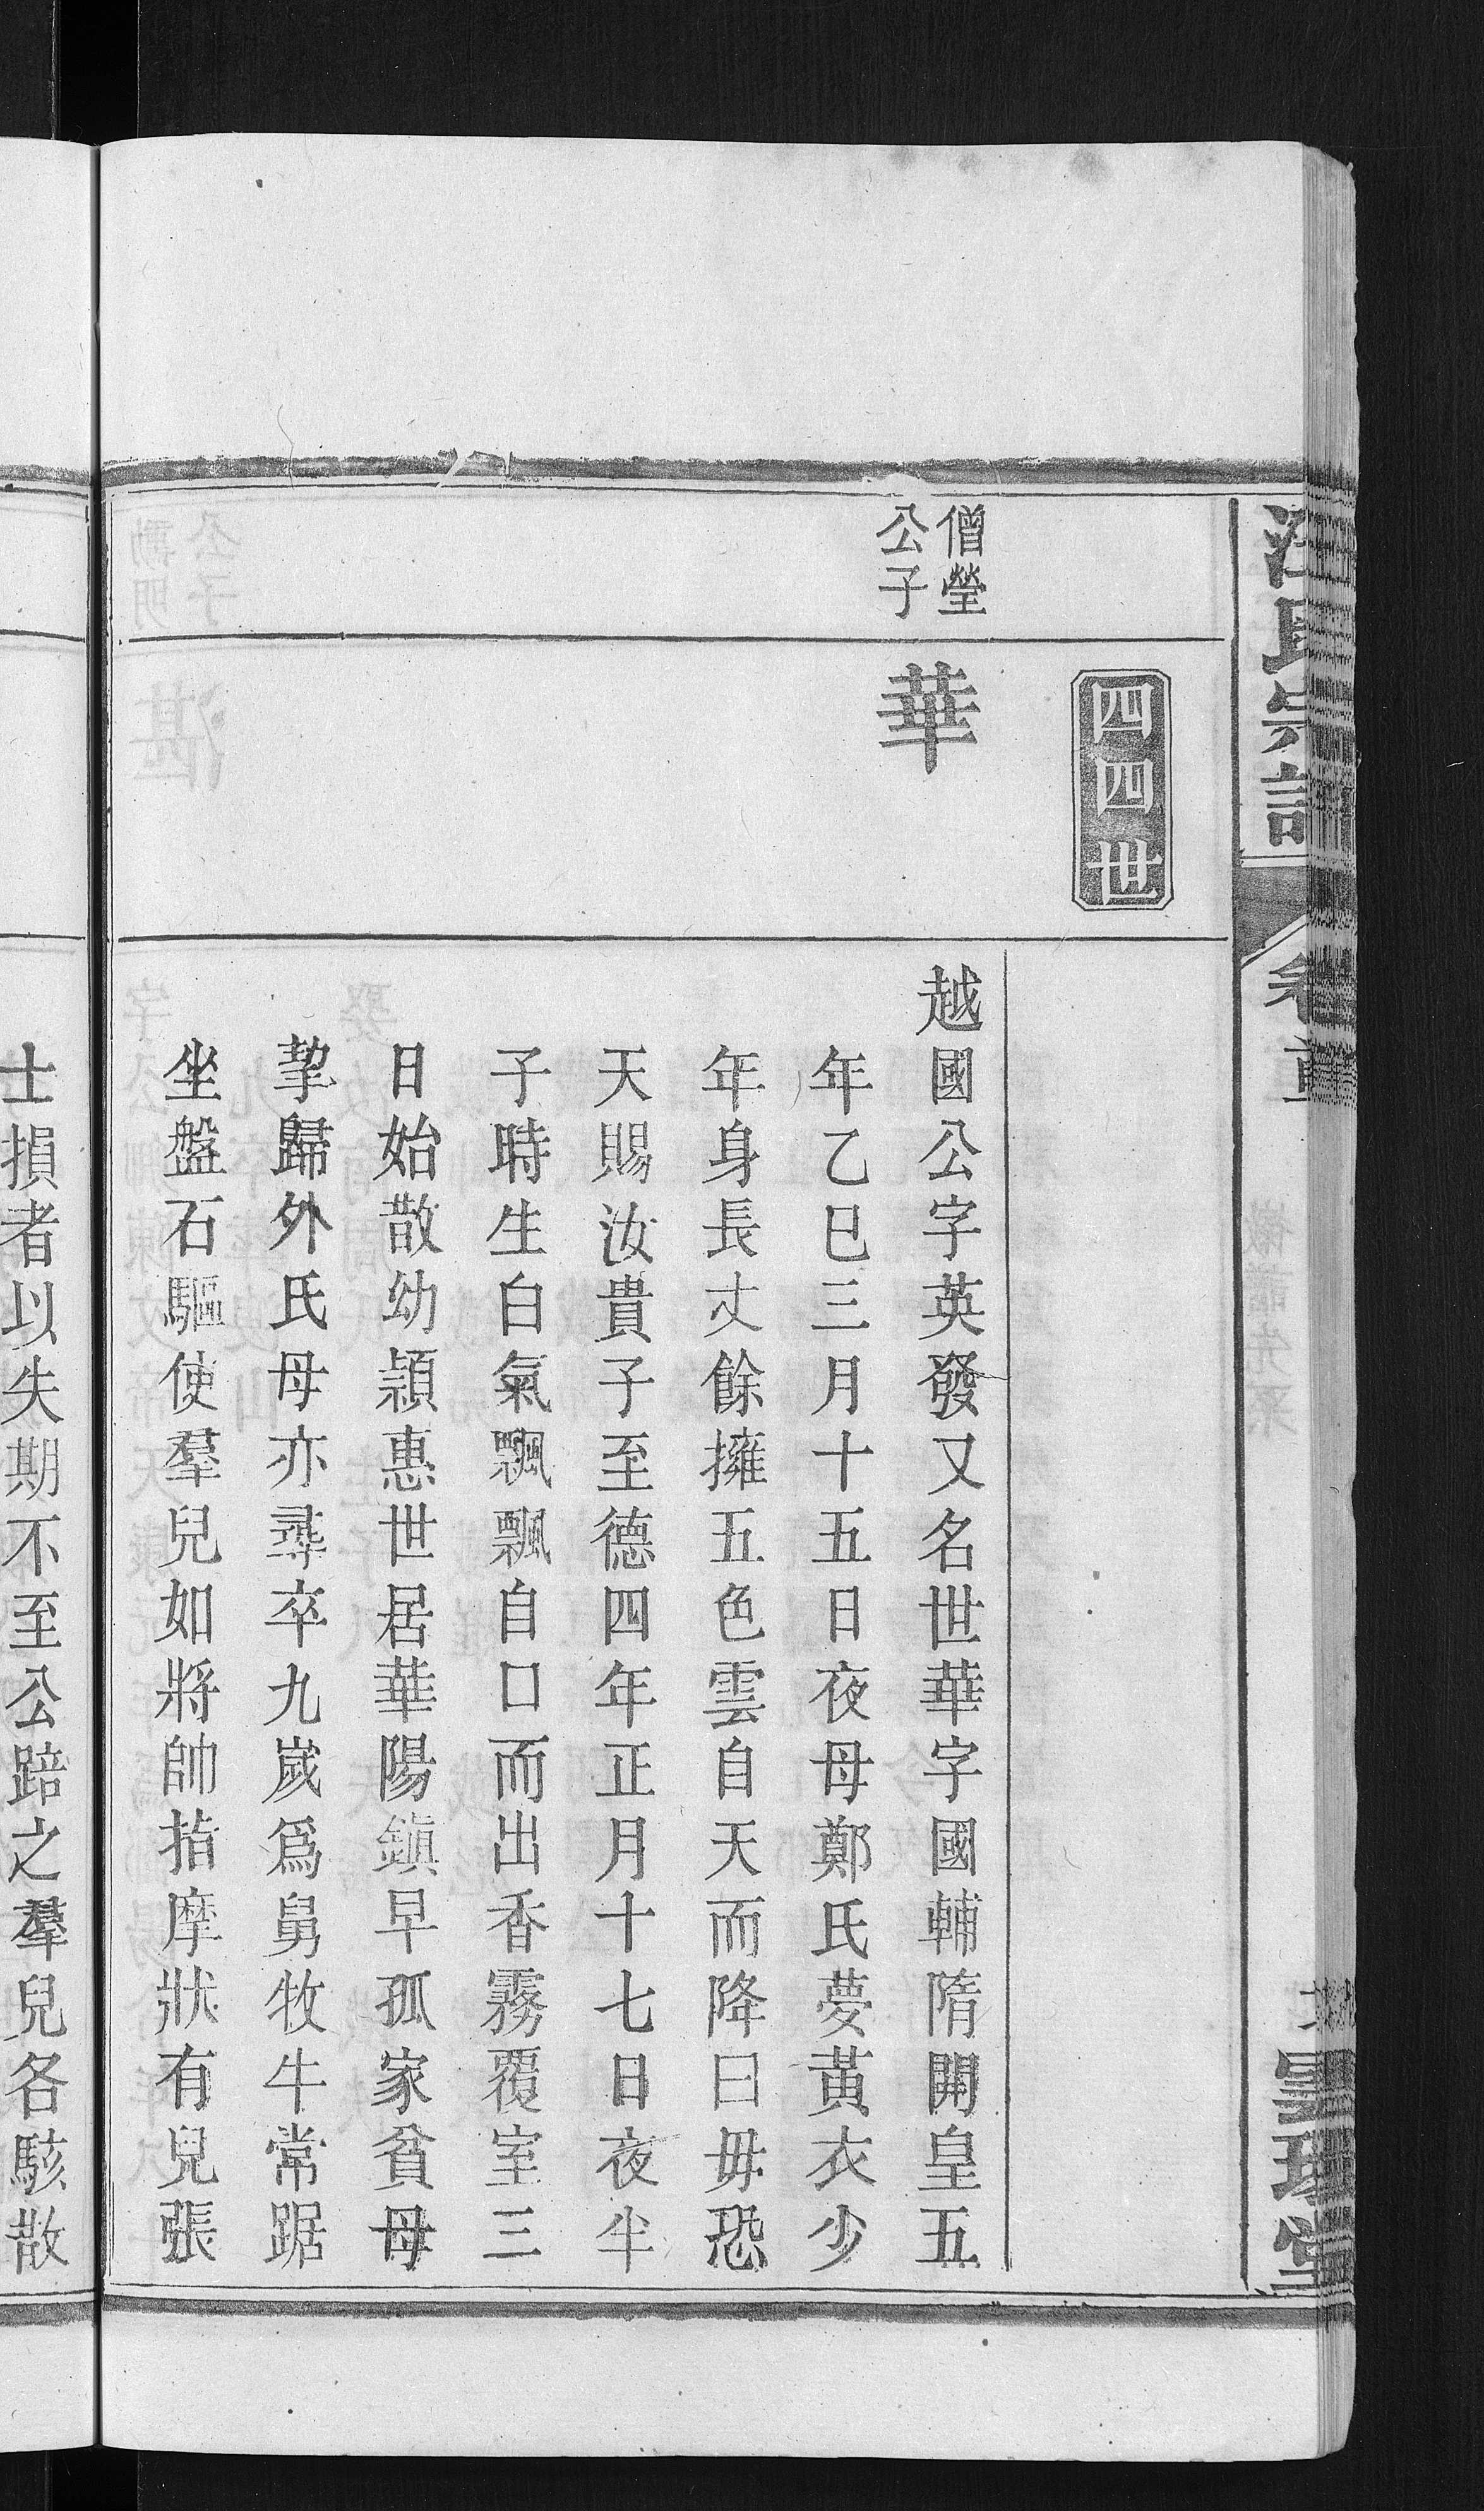 汪氏宗譜
四四世
僧瑩
公子
華
越國公字英發又名世華字國輔隋開皇五
年乙巳三月十五日夜母鄭氏夢黃衣少
年身長丈餘擁五色雲自天而降曰毋恐
天賜汝貴子至德四年正月十七日夜半
子時生白氣飄飄自口而出香霧覆室三
日始散幼穎惠世居華陽鎮早孤家貧母
挈歸外氏母亦尋卒九歲爲舅牧牛常踞
坐盤石驅使羣兒如將帥指摩狀有兒張
士損者以失期不至公踣之羣兒各駭散